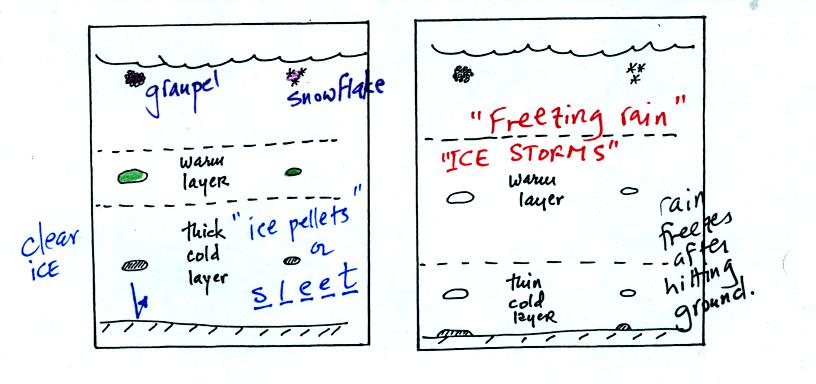 graupel
snowflake
warm
layer
clear
ICE
thick
cold
layer
"ice pellets"
or
sleet
"Freezing rain"
"ICE STORMS"
warm
layer
rain
freezes
after
hitting
ground.
thin
cold
layer